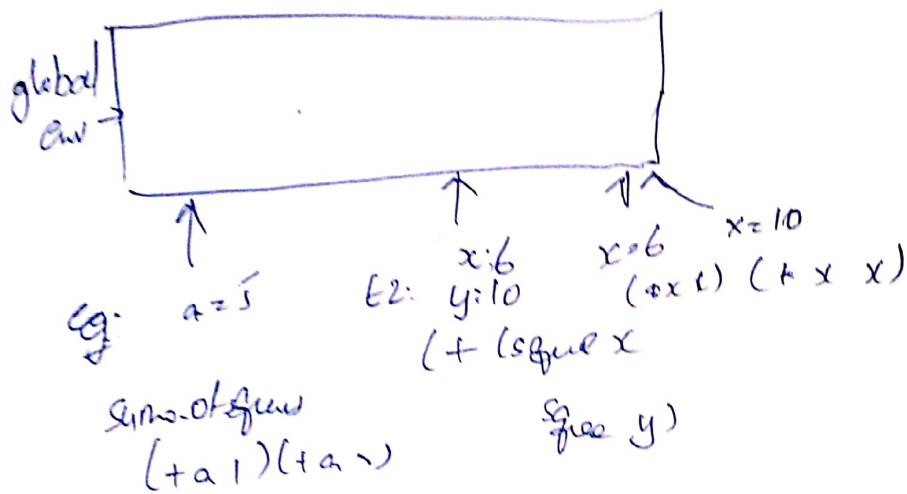 global
env
x=10
x:6
x=6
Eg: a=5
E2: y:10
(*x x) (* x x)
(+ (square x
square y)
sum-of-squares
(+a 1)(+a